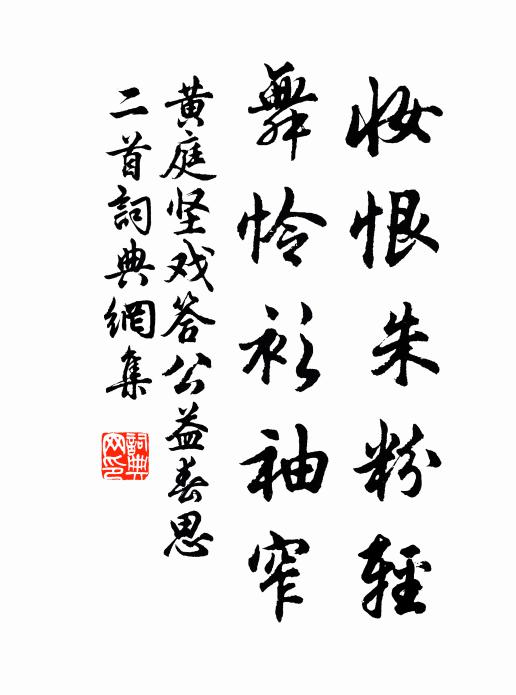 妆恨朱粉輕
舞怜衫袖窄
黄庭坚戏答公益春思
二首詞典網集
詞典網印